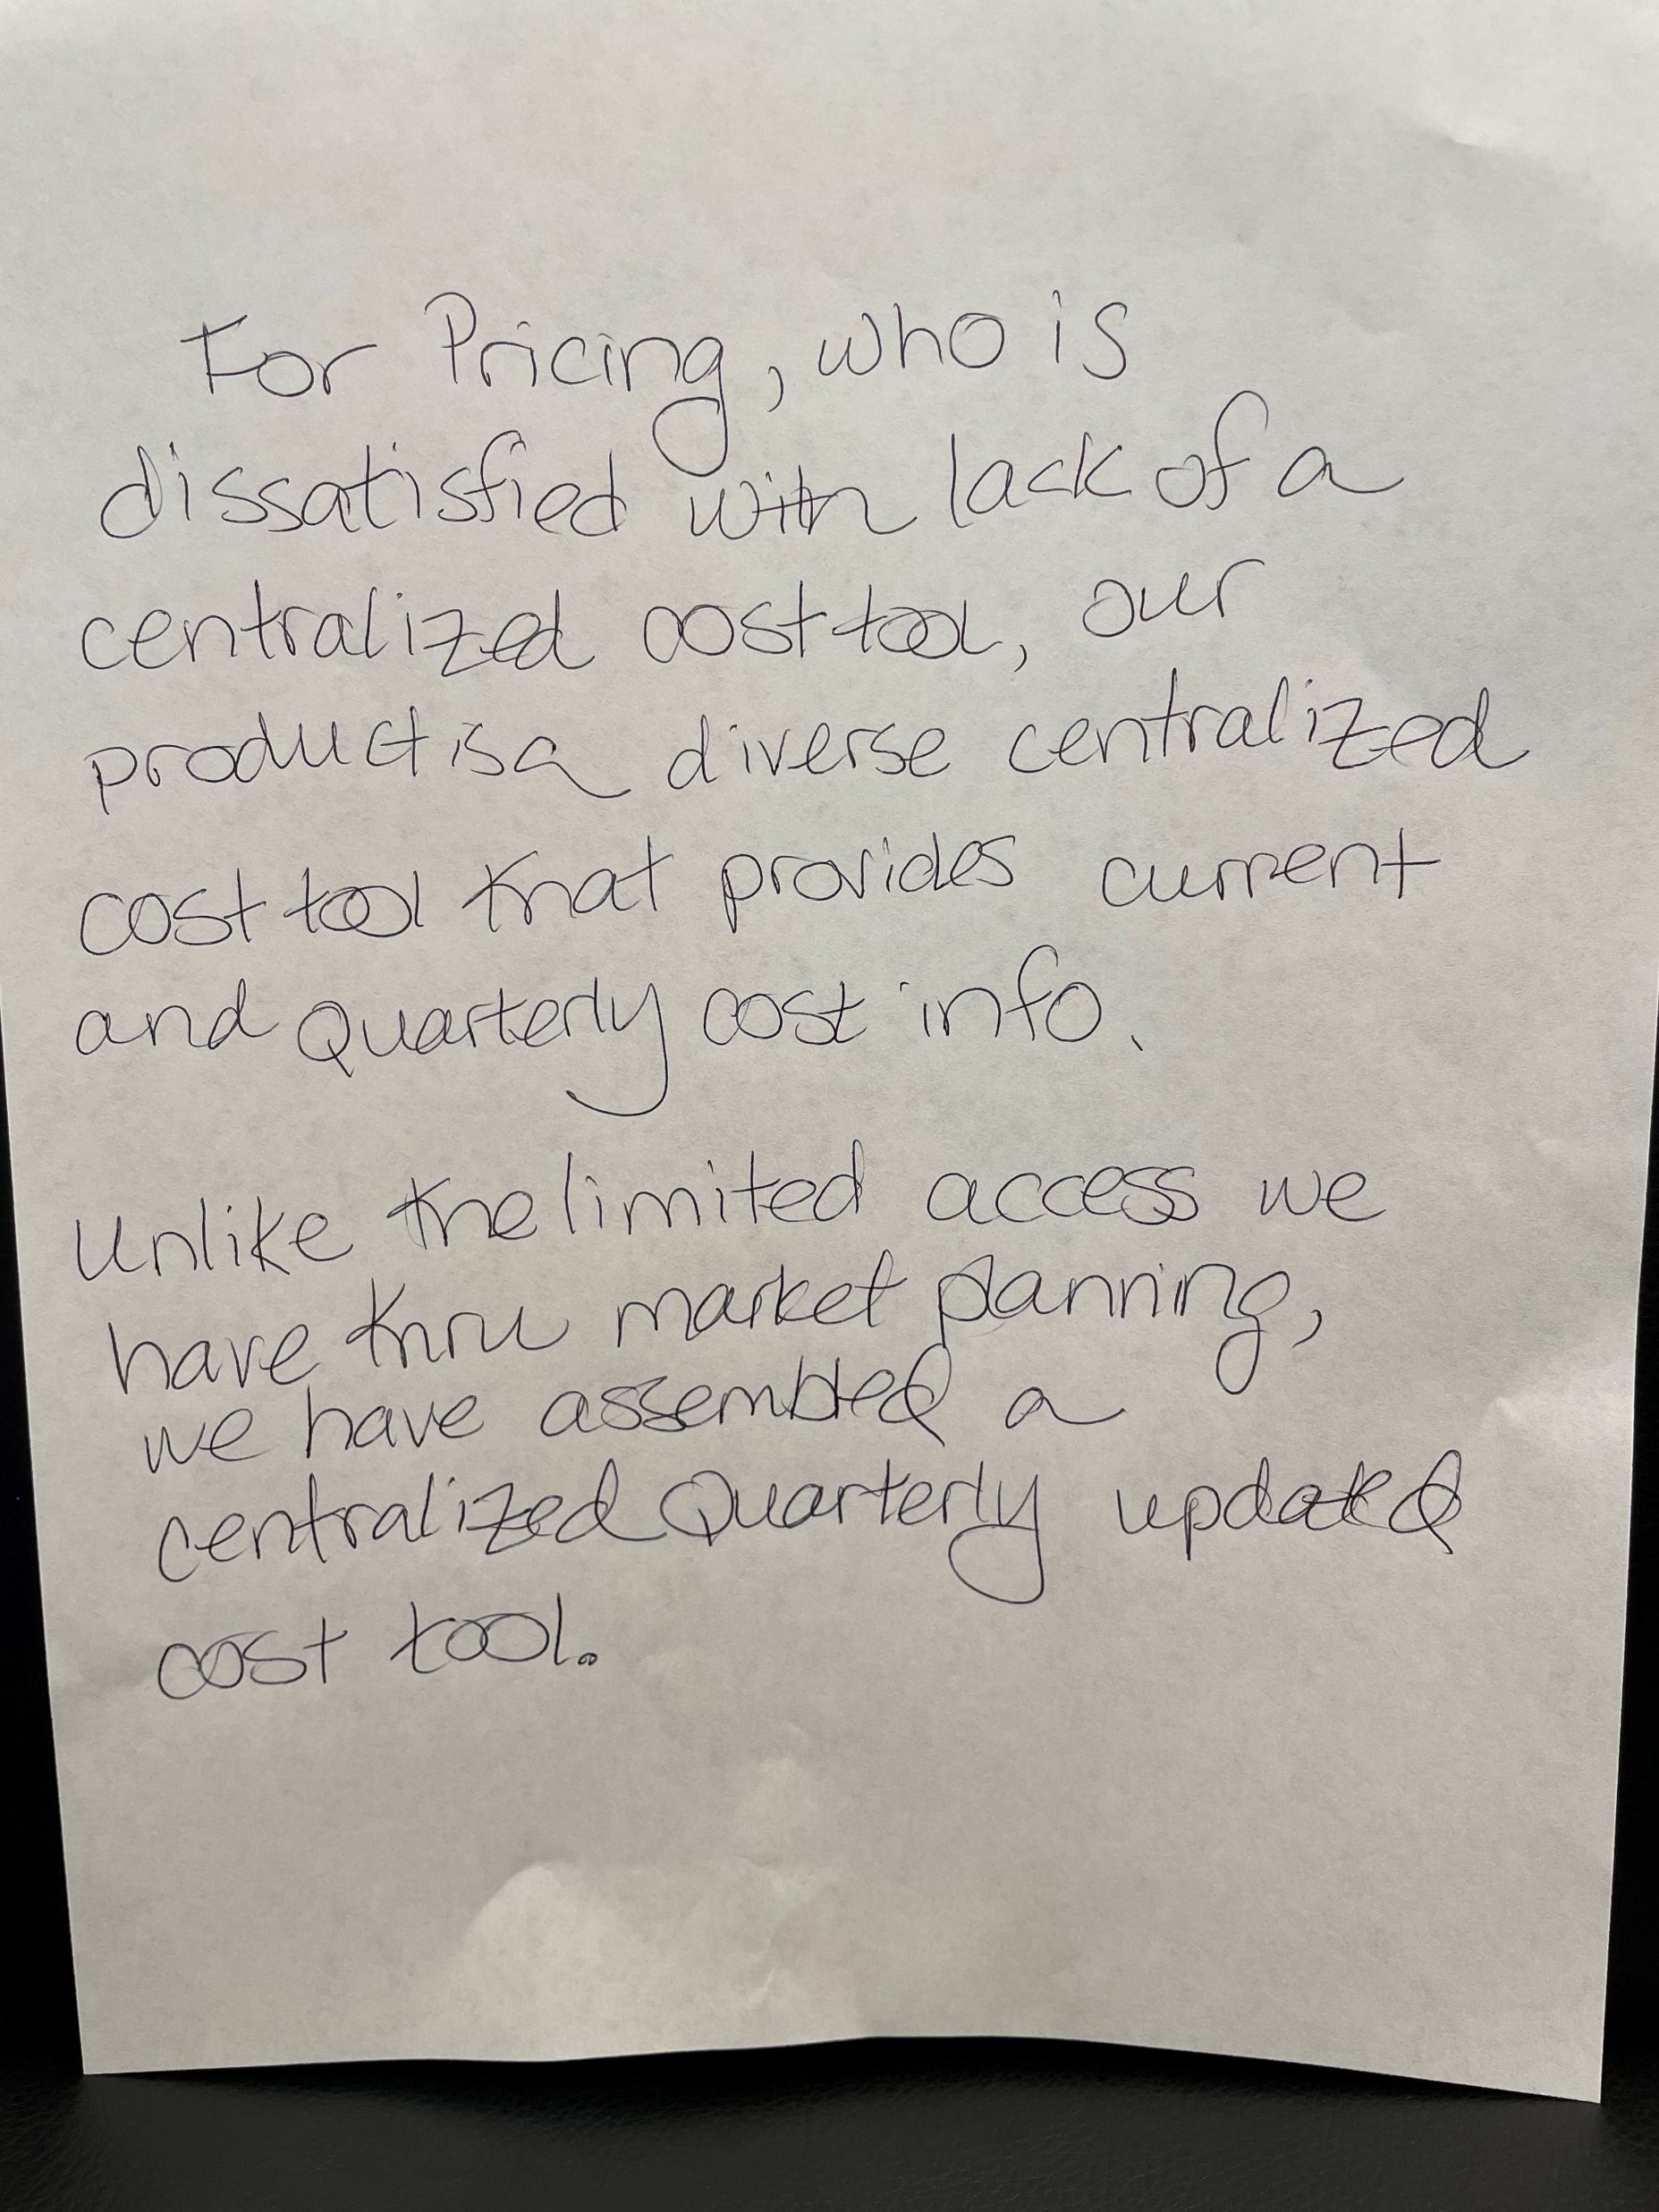 For Pricing, who is
dissatisfied with lack of a
centralized cost tool, our
product is a diverse centralized
cost tool that provides current
and Quarterly cost info.
Unlike the limited access we
have thru market planning,
we have assembled a
centralized Quarterly updated
cost tool.